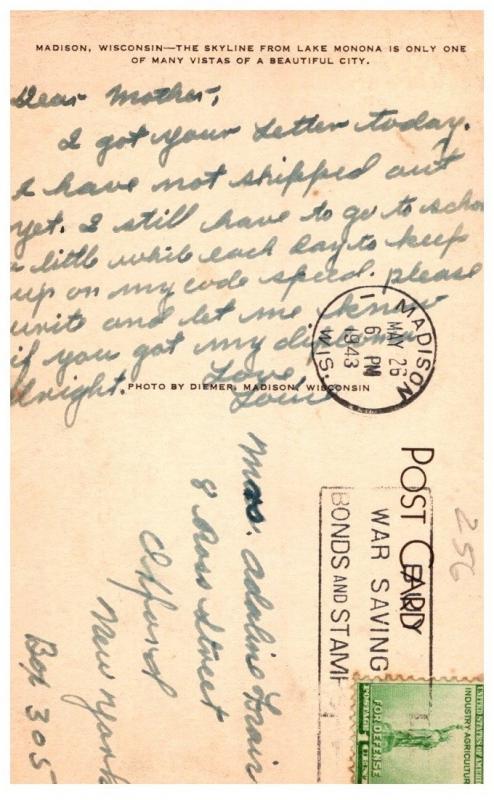 MADISON, WISCONSIN—THE SKYLINE FROM LAKE MONONA IS ONLY ONE
OF MANY VISTAS OF A BEAUTIFUL CITY.
Dear Mother,
I got your letter today.
I have not shipped out
yet. I still have to go to schoo
a little while each day to keep
up on my code speed. please
write and let me know
if you got my diploma
alright.
Love,
Louie
PHOTO BY DIEMER, MADISON, WISCONSIN
MADISON
1
MAY 26
6 PM
1943
WIS.
POST CARD
WAR SAVING
BONDS AND STAMP
256
Mrs. Adaline Frair
8 Ross Street
Afford
New York
Box 305
UNITED STATES OF AMERI
INDUSTRY AGRICULTUR
FOR DEFENSE
POSTAGE 1 CENT